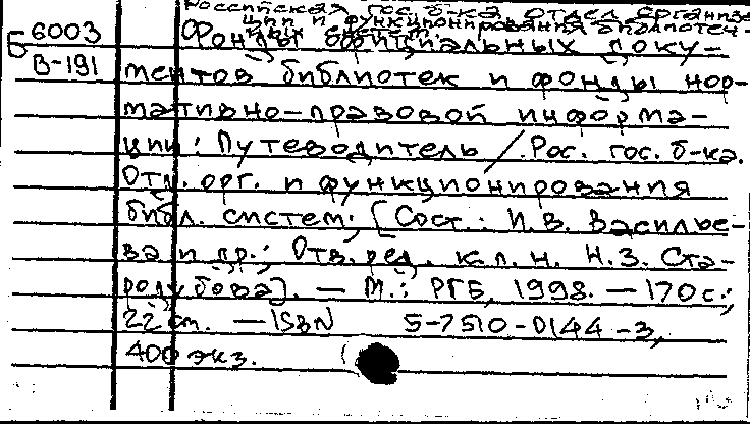 Российская гос. б-ка. Отдел организа-
ции и функционирования библиотеч-
ных систем.
Б 6003
В-191
Фонды официальных доку-
ментов библиотек и фонды нор-
мативно-правовой информа-
ции: Путеводитель / Рос. гос. б-ка.
Отд. орг. и функционирования
библ. систем; [Сост.: И.В. Василье-
ва и др.; Отв. ред. к.п.н. Н.З. Ста-
родубова]. — М.: РГБ, 1998. — 170 с.;
22 см. — ISBN 5-7510-0144-3,
400 экз.